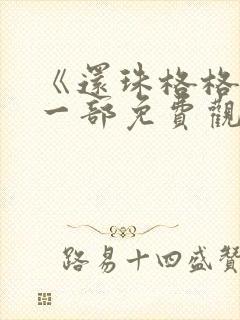 《還珠格格
一部免費觀
路易十四盛贊